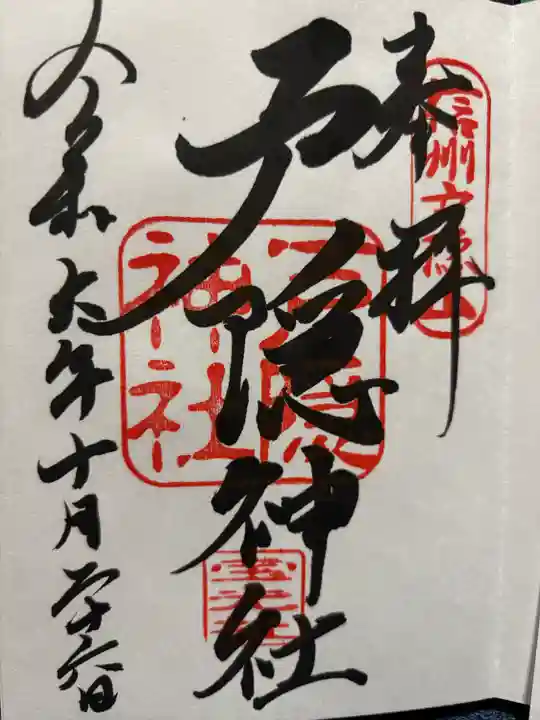 奉拝
信州戸隠山
戸隠神社
戸隠
神社
令和六年十月二十六日